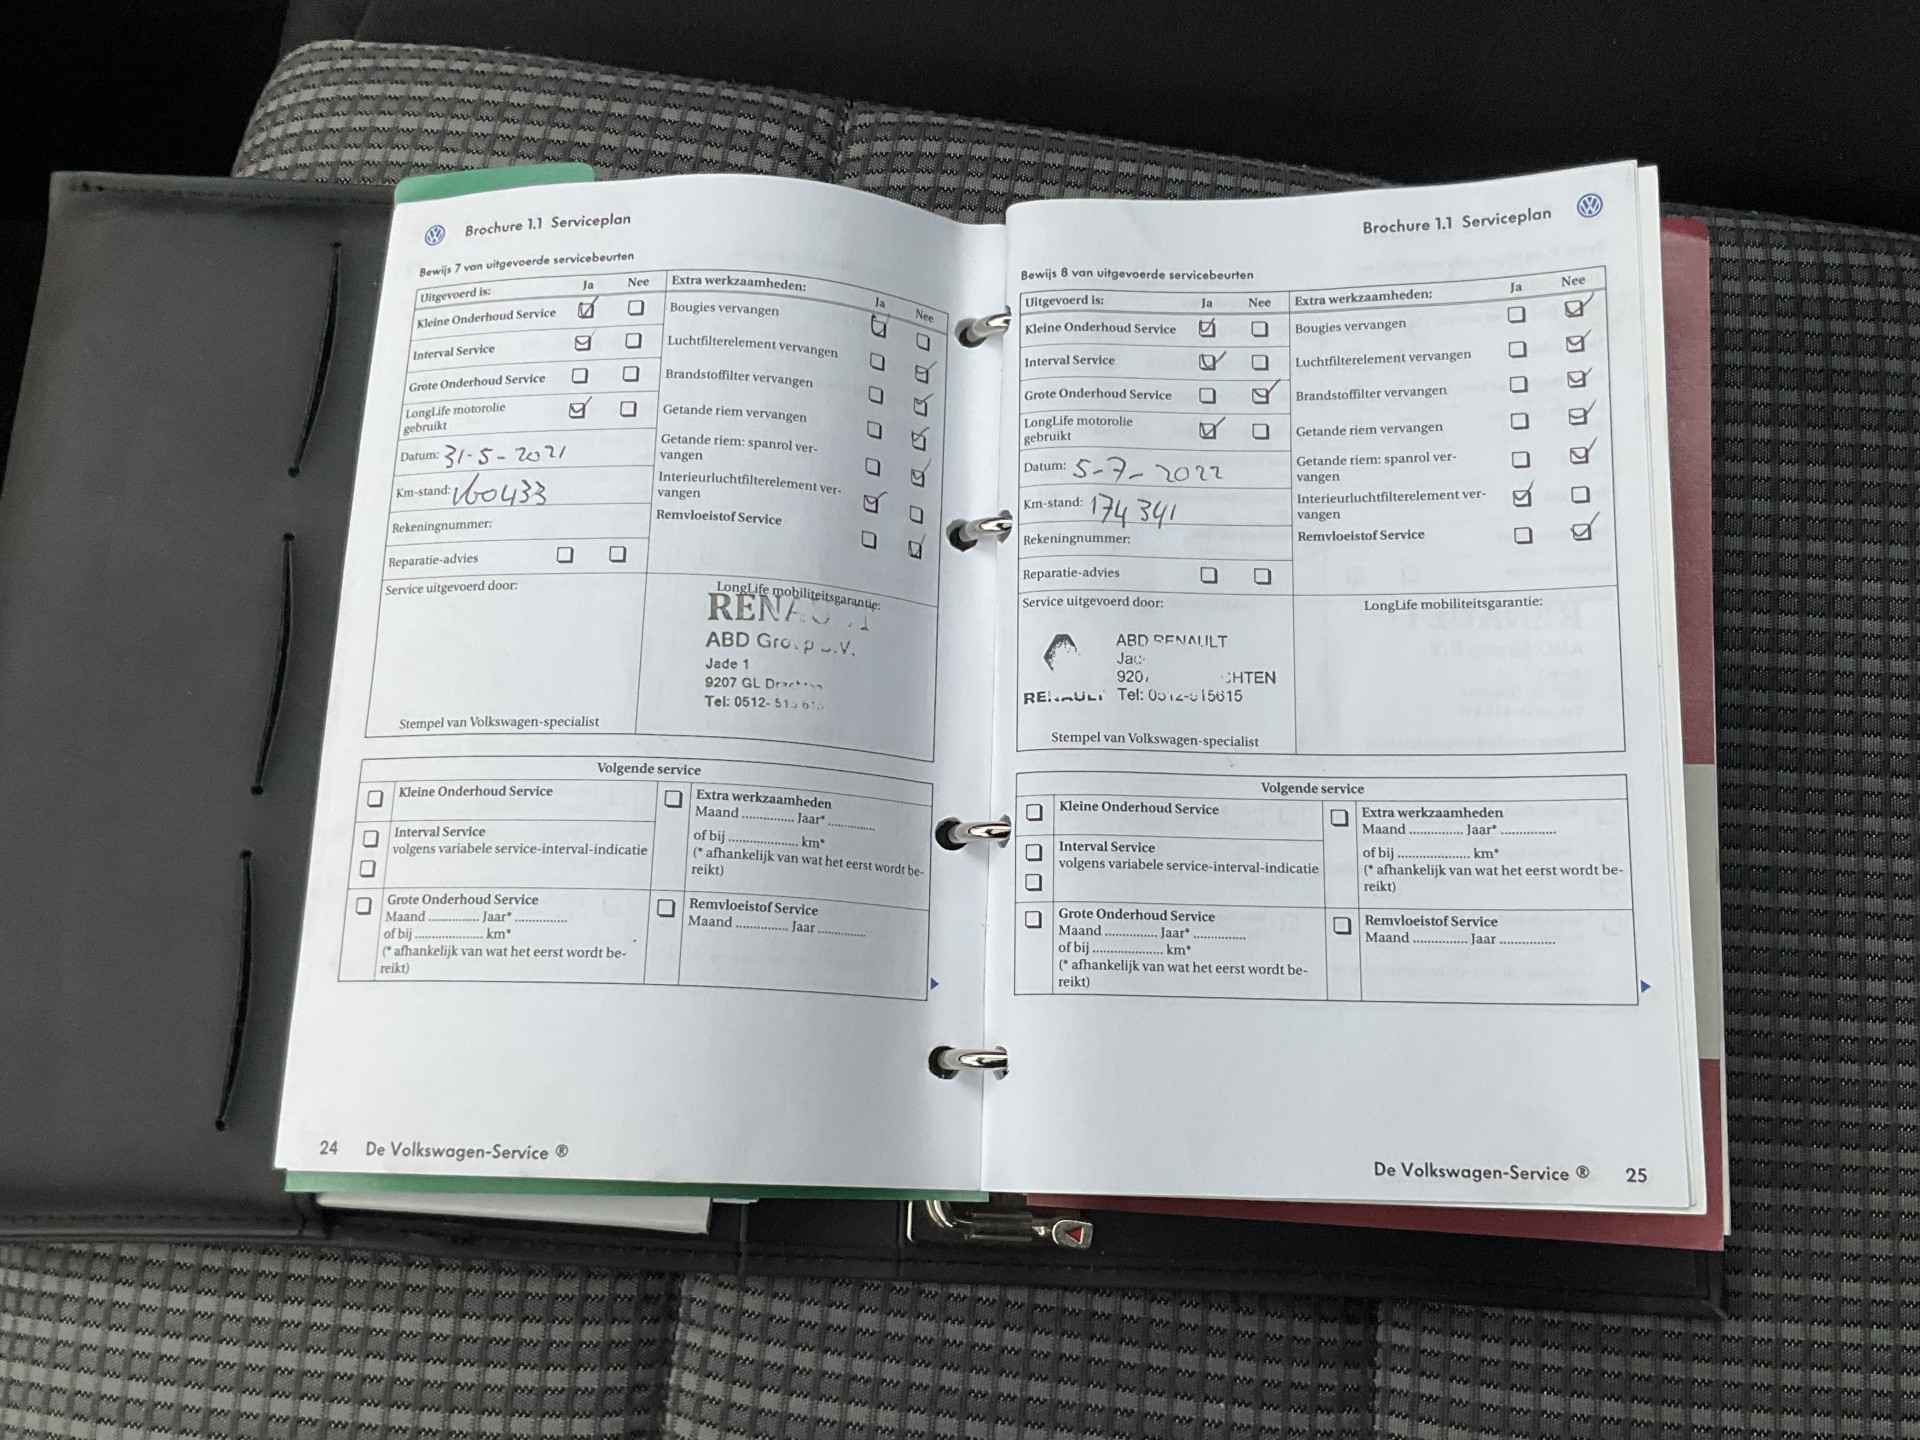 Brochure 1.1 Serviceplan
Bewijs 7 van uitgevoerde servicebeurten
Uitgevoerd is: Ja Nee
Kleine Onderhoud Service
Interval Service
Grote Onderhoud Service
LongLife motorolie
gebruikt
Datum: 31-5-2021
Km-stand: 160433
Rekeningnummer:
Reparatie-advies
Extra werkzaamheden: Ja Nee
Bougies vervangen
Luchtfilterelement vervangen
Brandstoffilter vervangen
Getande riem vervangen
Getande riem: spanrol ver-
vangen
Interieurluchtfilterelement ver-
vangen
Remvloeistof Service
Service uitgevoerd door:
Stempel van Volkswagen-specialist
LongLife mobiliteitsgarantie:
ABD
Jade 1
9207 GL
Tel: 0512-
Volgende service
Kleine Onderhoud Service
Interval Service
volgens variabele service-interval-indicatie
Grote Onderhoud Service
Maand .............. Jaar* ..............
of bij .................... km*
(* afhankelijk van wat het eerst wordt be-
reikt)
Extra werkzaamheden
Maand .............. Jaar* .............
of bij .................... km*
(* afhankelijk van wat het eerst wordt be-
reikt)
Remvloeistof Service
Maand .............. Jaar .............
24 De Volkswagen-Service ®
Brochure 1.1 Serviceplan
Bewijs 8 van uitgevoerde servicebeurten
Uitgevoerd is: Ja Nee
Kleine Onderhoud Service
Interval Service
Grote Onderhoud Service
LongLife motorolie
gebruikt
Datum: 5-7-2022
Km-stand: 174341
Rekeningnummer:
Reparatie-advies
Extra werkzaamheden: Ja Nee
Bougies vervangen
Luchtfilterelement vervangen
Brandstoffilter vervangen
Getande riem vervangen
Getande riem: spanrol ver-
vangen
Interieurluchtfilterelement ver-
vangen
Remvloeistof Service
Service uitgevoerd door:
ABD RENAULT
RENAULT Tel: 0512-515615
Stempel van Volkswagen-specialist
LongLife mobiliteitsgarantie:
Volgende service
Kleine Onderhoud Service
Interval Service
volgens variabele service-interval-indicatie
Grote Onderhoud Service
Maand .............. Jaar* ..............
of bij .................... km*
(* afhankelijk van wat het eerst wordt be-
reikt)
Extra werkzaamheden
Maand .............. Jaar* ..............
of bij .................... km*
(* afhankelijk van wat het eerst wordt be-
reikt)
Remvloeistof Service
Maand .............. Jaar ..............
De Volkswagen-Service ® 25